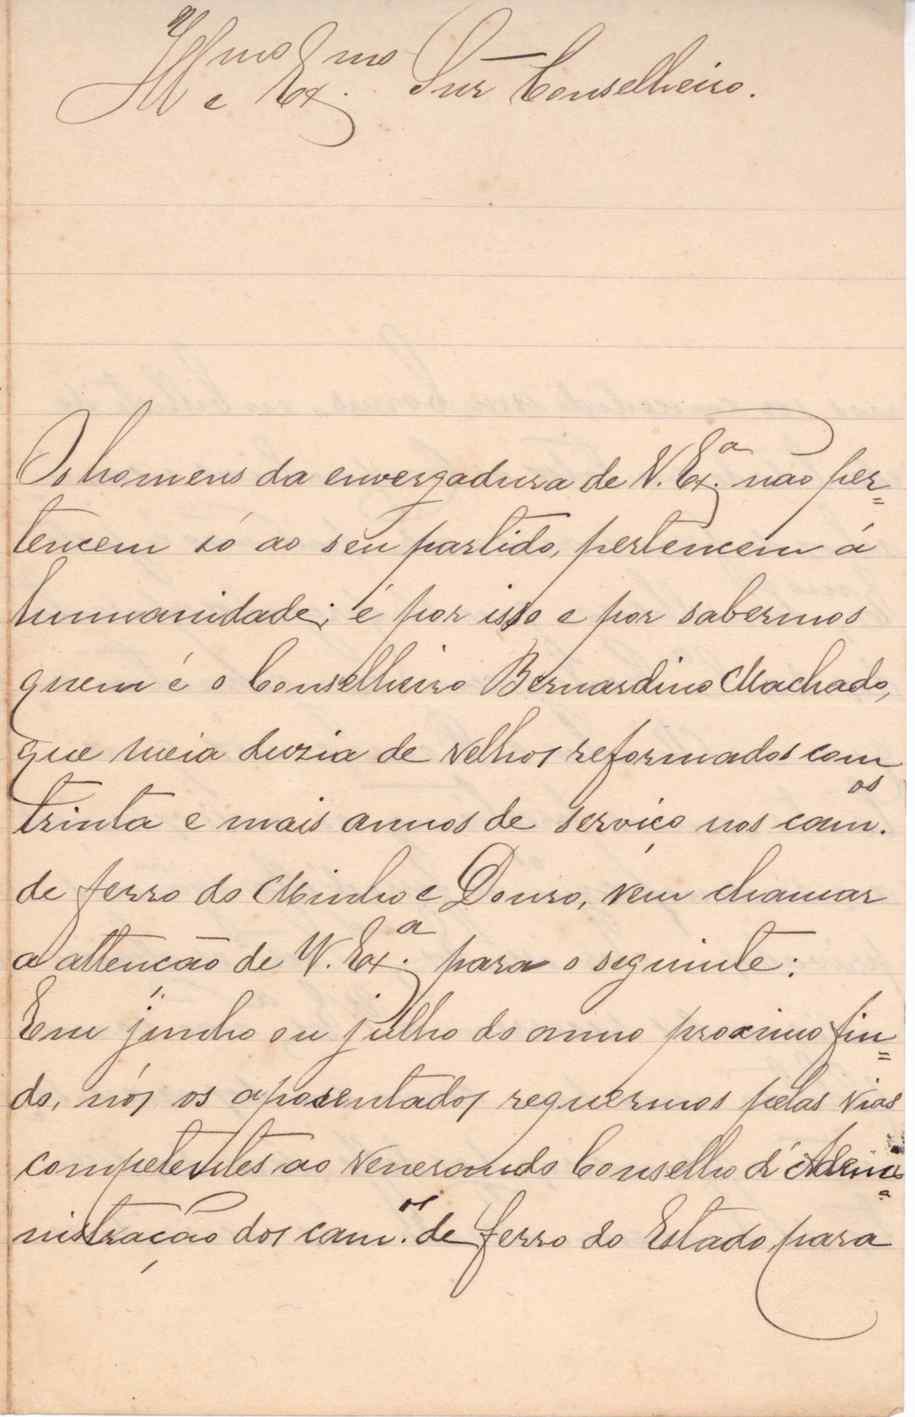 Illmo e Exmo Snr Conselheiro.
Os homens da envergadura de V. Exa. não per=
tencem só ao seu partido, pertencem á
humanidade; é por isso e por sabermos
quem é o Conselheiro Bernardino Machado,
que meia duzia de velhos reformados com
trinta e mais annos de serviço nos cam.os
de ferro do Minho e Douro, vém chamar
a attencão de V. Exa. para o seguinte:
Em junho ou julho do anno proximo fin=
do, nós os aposentados requermos pelas vias
competentes ao venerando Conselho d'Admi=
nistração dos cam.os de ferro do Estado para